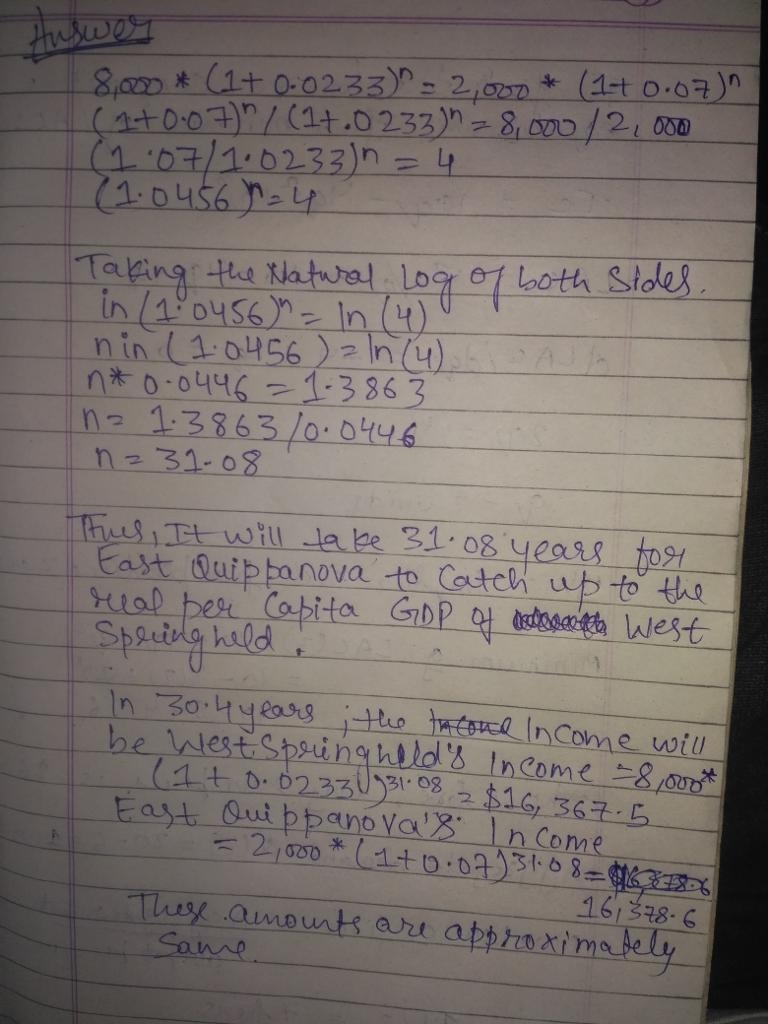 Answer
8,000 * (1+ 0.0233)ⁿ = 2,000 * (1+ 0.07)ⁿ
(1+0.07)ⁿ / (1+.0233)ⁿ = 8,000 / 2,000
(1.07/1.0233)ⁿ = 4
(1.0456)ⁿ = 4
Taking the Natural Log of both Sides.
in (1.0456)ⁿ = ln (4)
n in (1.0456) = ln (4)
n* 0.0446 = 1.3863
n = 1.3863/0.0446
n = 31.08
Thus, It will take 31.08 years for
East Quippanova to Catch up to the
real per Capita GDP of West
Springheld.
In 30.4 years, the Income Income will
be West Springheld's Income = 8,000*
(1+ 0.0233)³¹·⁰⁸ = $16,367.5
East Quippanova's Income
= 2,000 * (1+0.07)³¹·⁰⁸ = $16,378.6
16,378.6
These amounts are approximately
Same.